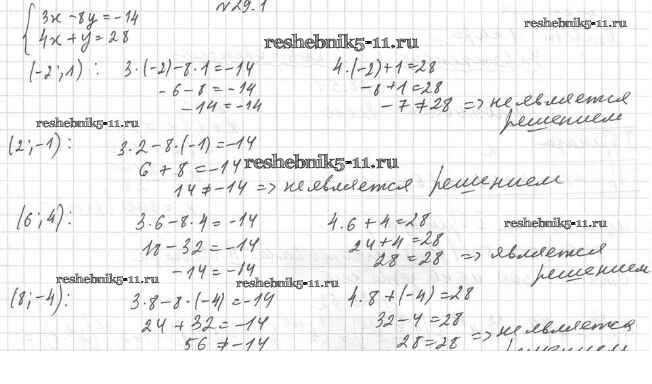 №29.1
{ 3x - 8y = -14
4x + y = 28
reshebnik5-11.ru
reshebnik5-11.ru
(-2; 1): 3·(-2)-8·1=-14 4·(-2)+1=28
-6-8=-14 -8+1=28
-14=-14 -7≠28 => не является
решением
reshebnik5-11.ru
(2; -1): 3·2-8·(-1)=-14
6+8=-14
reshebnik5-11.ru
14≠-14 => не является решением
(6; 4): 3·6-8·4=-14 4·6+4=28
reshebnik5-11.ru
18-32=-14 24+4=28
-14=-14 28=28 => является
решением
reshebnik5-11.ru
reshebnik5-11.ru
(8; -4): 3·8-8·(-4)=-14 4·8+(-4)=28
24+32=-14 32-4=28
56≠-14 28=28 => не является